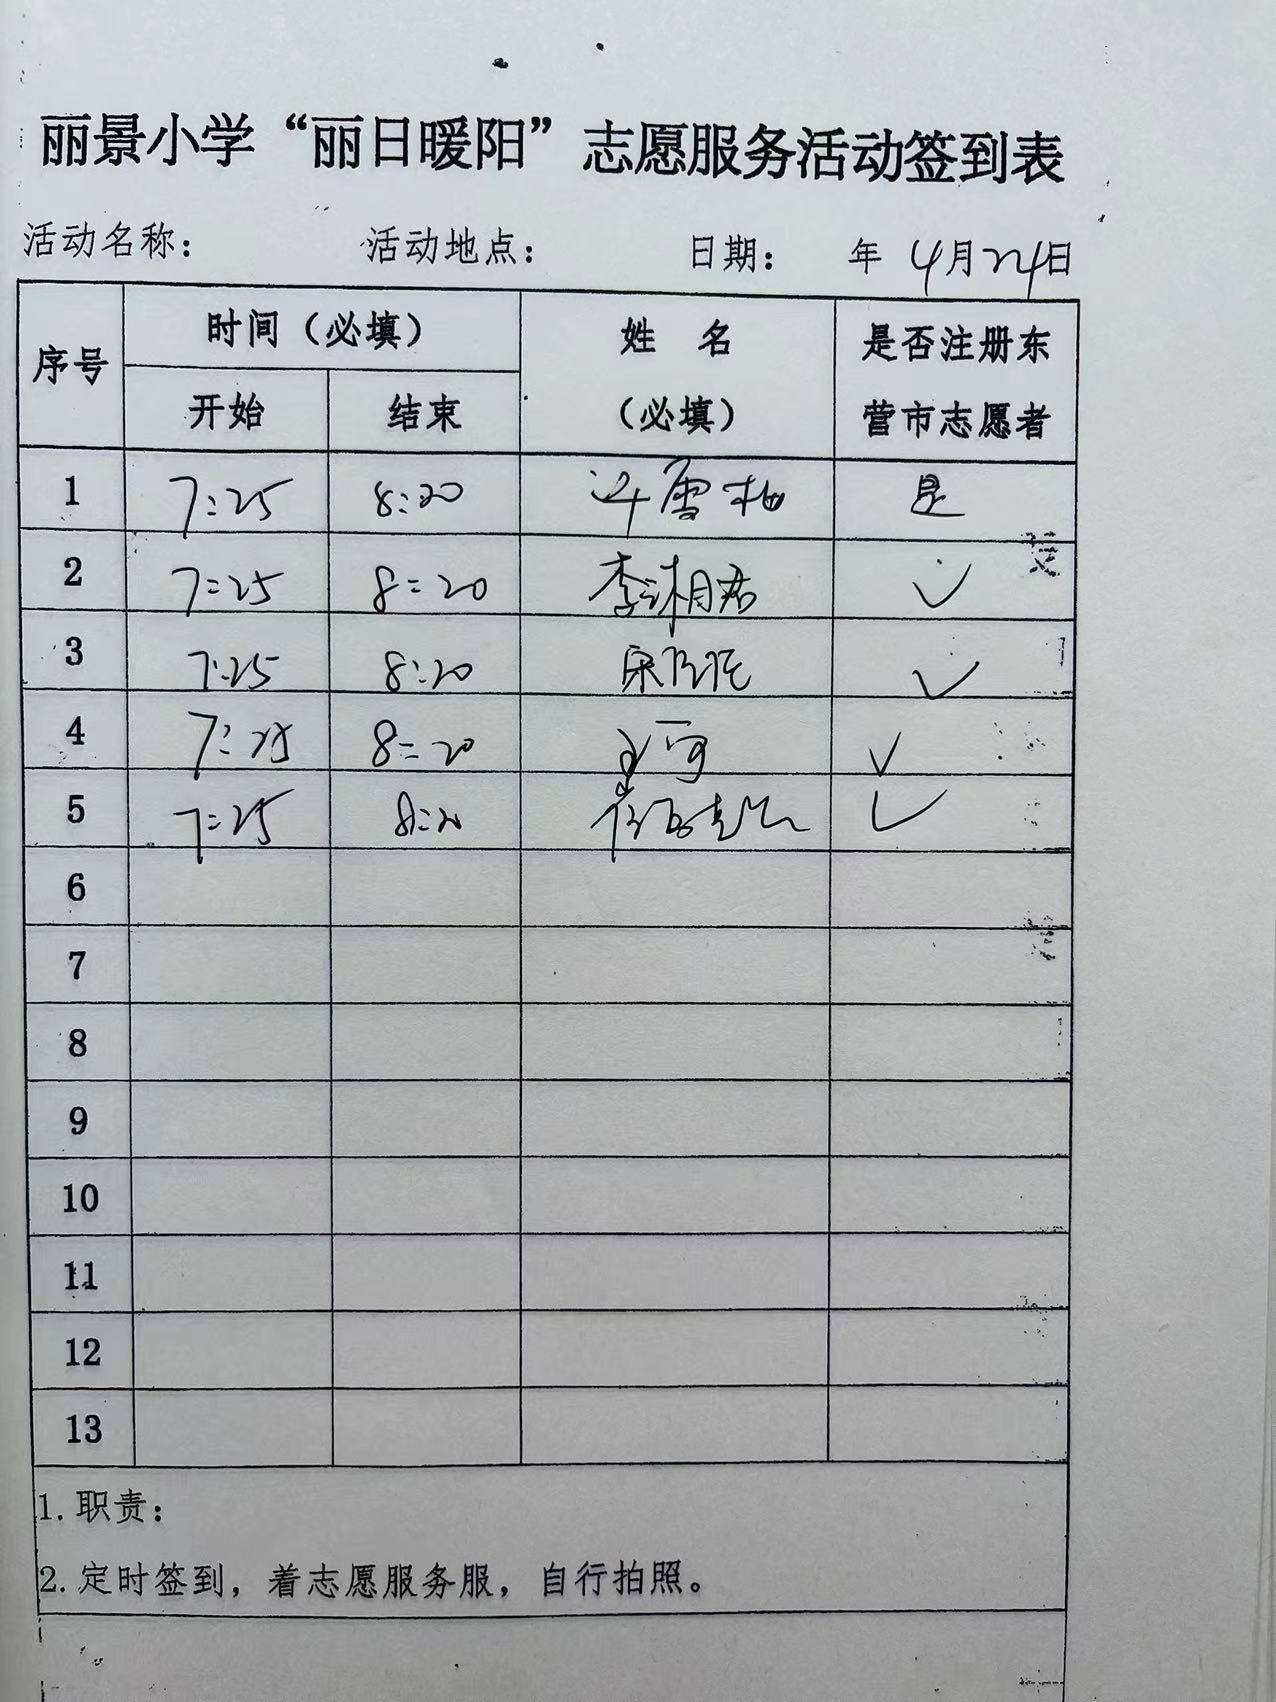 丽景小学“丽日暖阳”志愿服务活动签到表
活动名称： 活动地点： 日期： 年 4月24日
序号 时间（必填） 姓 名（必填） 是否注册东营市志愿者
开始 结束
1 7:25 8:20 雪 是
2 7:25 8:20 李沫君 ✓
3 7:25 8:20 宋 ✓
4 7:25 8:20 王一可 ✓
5 7:25 8:20 ✓
6
7
8
9
10
11
12
13
1. 职责：
2. 定时签到，着志愿服务服，自行拍照。